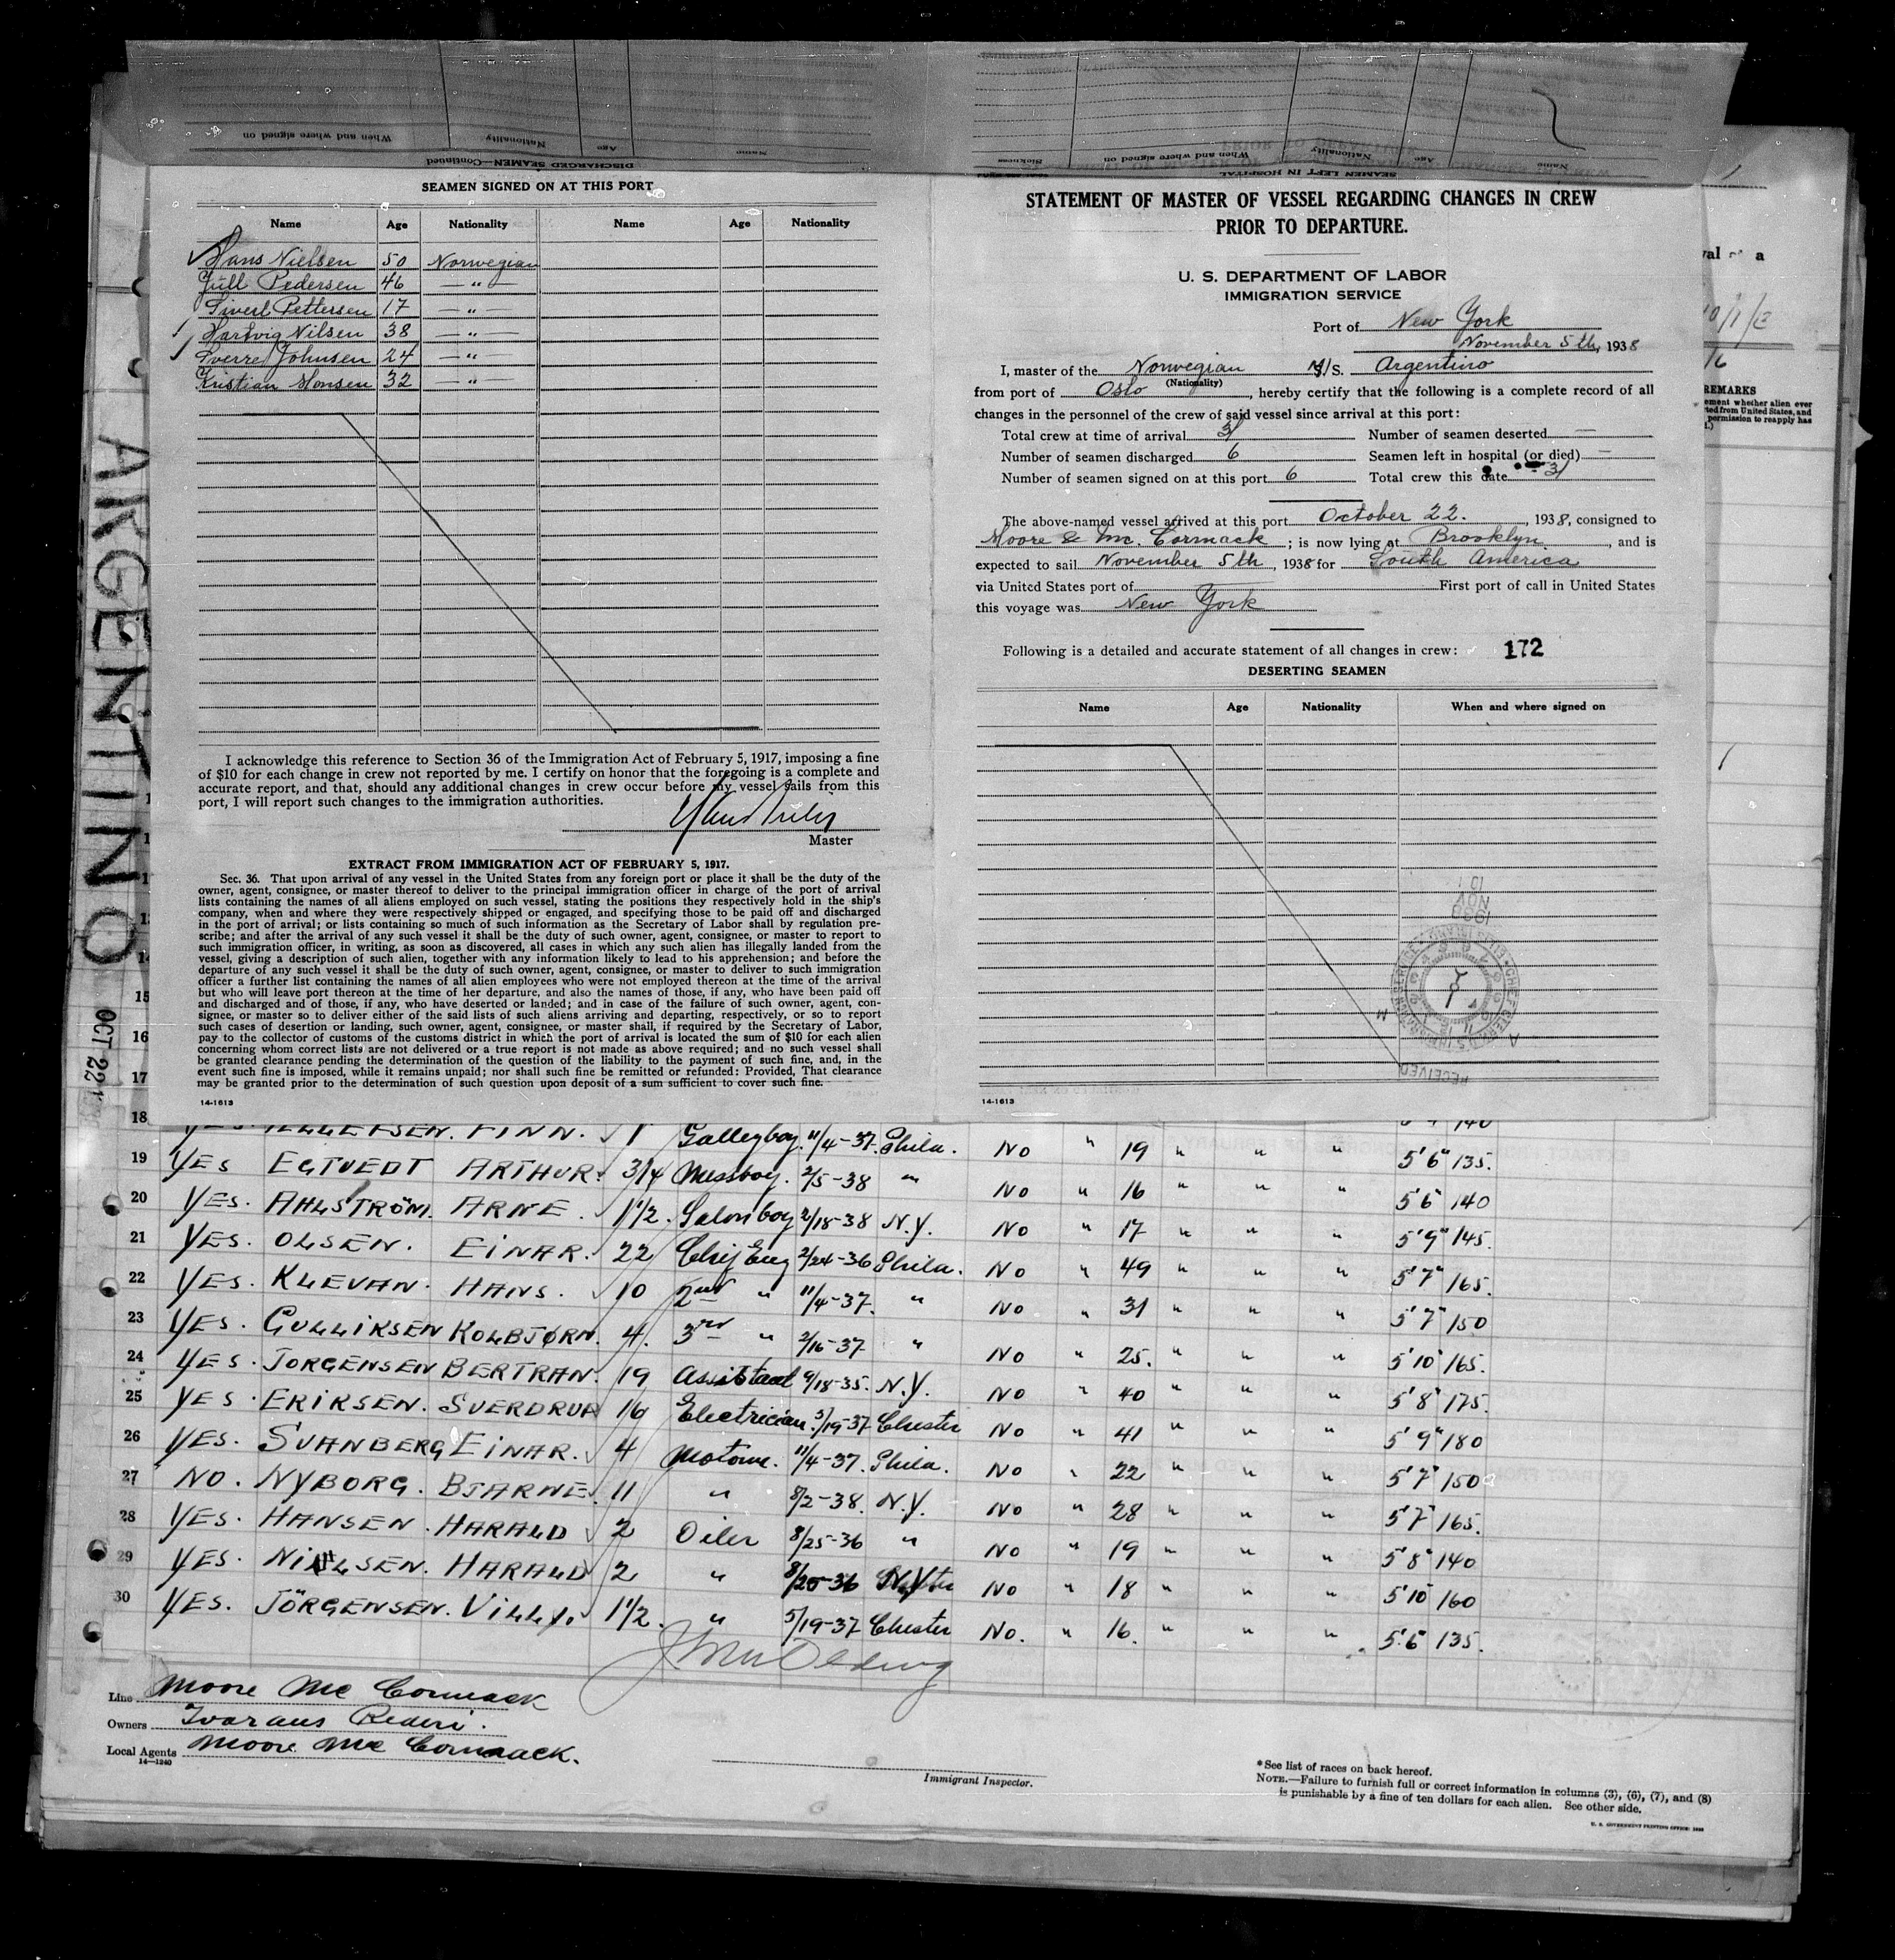 SEAMEN SIGNED ON AT THIS PORT
Name Age Nationality Name Age Nationality
Hans Nielsen 50 Norwegian
Jull Pedersen 46 — " —
Sivert Pettersen 17 — " —
Hartvig Nilsen 38 — " —
Sverre Johnsen 24 — " —
Kristian Monsen 32 — " —
I acknowledge this reference to Section 36 of the Immigration Act of February 5, 1917, imposing a fine
of $10 for each change in crew not reported by me. I certify on honor that the foregoing is a complete and
accurate report, and that, should any additional changes in crew occur before my vessel sails from this
port, I will report such changes to the immigration authorities.
Master
EXTRACT FROM IMMIGRATION ACT OF FEBRUARY 5, 1917.
Sec. 36. That upon arrival of any vessel in the United States from any foreign port or place it shall be the duty of the
owner, agent, consignee, or master thereof to deliver to the principal immigration officer in charge of the port of arrival
lists containing the names of all aliens employed on such vessel, stating the positions they respectively hold in the ship's
company, when and where they were respectively shipped or engaged, and specifying those to be paid off and discharged
in the port of arrival; or lists containing so much of such information as the Secretary of Labor shall by regulation pre-
scribe; and after the arrival of any such vessel it shall be the duty of such owner, agent, consignee, or master to report to
such immigration officer, in writing, as soon as discovered, all cases in which any such alien has illegally landed from the
vessel, giving a description of such alien, together with any information likely to lead to his apprehension; and before the
departure of any such vessel it shall be the duty of such owner, agent, consignee, or master to deliver to such immigration
officer a further list containing the names of all alien employees who were not employed thereon at the time of the arrival
but who will leave port thereon at the time of her departure, and also the names of those, if any, who have been paid off
and discharged and of those, if any, who have deserted or landed; and in case of the failure of such owner, agent, con-
signee, or master so to deliver either of the said lists of such aliens arriving and departing, respectively, or so to report
such cases of desertion or landing, such owner, agent, consignee, or master shall, if required by the Secretary of Labor,
pay to the collector of customs of the customs district in which the port of arrival is located the sum of $10 for each alien
concerning whom correct lists are not delivered or a true report is not made as above required; and no such vessel shall
be granted clearance pending the determination of the question of the liability to the payment of such fine, and, in the
event such fine is imposed, while it remains unpaid; nor shall such fine be remitted or refunded: Provided, That clearance
may be granted prior to the determination of such question upon deposit of a sum sufficient to cover such fine.
14-1613
STATEMENT OF MASTER OF VESSEL REGARDING CHANGES IN CREW
PRIOR TO DEPARTURE.
U. S. DEPARTMENT OF LABOR
IMMIGRATION SERVICE
Port of New York
November 5th, 1938
I, master of the Norwegian M/S. Argentino
(Nationality)
from port of Oslo, hereby certify that the following is a complete record of all
changes in the personnel of the crew of said vessel since arrival at this port:
Total crew at time of arrival 31 Number of seamen deserted —
Number of seamen discharged 6 Seamen left in hospital (or died) —
Number of seamen signed on at this port 6 Total crew this date 31
The above-named vessel arrived at this port October 22., 1938, consigned to
Moore & Mc. Cormack; is now lying at Brooklyn, and is
expected to sail November 5th, 1938 for South America
via United States port of First port of call in United States
this voyage was New York
Following is a detailed and accurate statement of all changes in crew: 172
DESERTING SEAMEN
Name Age Nationality When and where signed on
RECEIVED
14-1613
ARGENTINO
OCT 22
REMARKS
15
16
17
18 FINN. 1 Galleyboy. 11/4-37. Phila. No " 19 " " "
19 YES EGTVEDT ARTHUR. 3/4 Messboy. 2/5-38 " No " 16 " " " 5'6" 135.
20 YES. AHLSTRÖM. ARNE. 1 1/2. Salonboy 2/18-38 N.Y. No " 17 " " " 5'6 140
21 YES. OLSEN. EINAR. 22 Chif Eng 2/24-36 Phila. No " 49 " " " 5'9" 145.
22 YES. KLEVAN. HANS. 10 2nd " 11/4-37. " No " 31 " " " 5'7" 165.
23 YES. GULLIKSEN KOLBJØRN. 4. 3rd " 2/16-37 " No " 25. " " " 5'7" 150
24 YES. JORGENSEN BERTRAN. 19 Assistant 9/18-35. N.Y. No " 40 " " " 5'10" 165.
25 YES. ERIKSEN. SVERDRUP 16 Electrician. 5/19-37 Chester No " 41 " " " 5'8" 175.
26 YES. SVANBERG EINAR. 4 Motorm. 11/4-37. Phila. No " 22 " " " 5'9" 180
27 NO. NYBORG. BJARNE. 11 " 8/2-38. N.Y. No " 28 " " " 5'7" 150
28 YES. HANSEN. HARALD 2 Oiler 8/25-36 " No " 19 " " " 5'7" 165.
29 YES. NIELSEN. HARALD 2 " 8/25-36 N.Y. No " 18 " " " 5'8" 140
30 YES. JÖRGENSEN. VILLY. 1 1/2. " 5/19-37 Chester No. " 16. " " " 5'10" 160
5'6" 135.
Line Moore Mc Cormack
Owners Ivarans Rederi.
Local Agents Moore Mc Cormack.
14—1240
Immigrant Inspector.
*See list of races on back hereof.
NOTE.—Failure to furnish full or correct information in columns (3), (6), (7), and (8)
is punishable by a fine of ten dollars for each alien. See other side.
U. S. GOVERNMENT PRINTING OFFICE: 1938